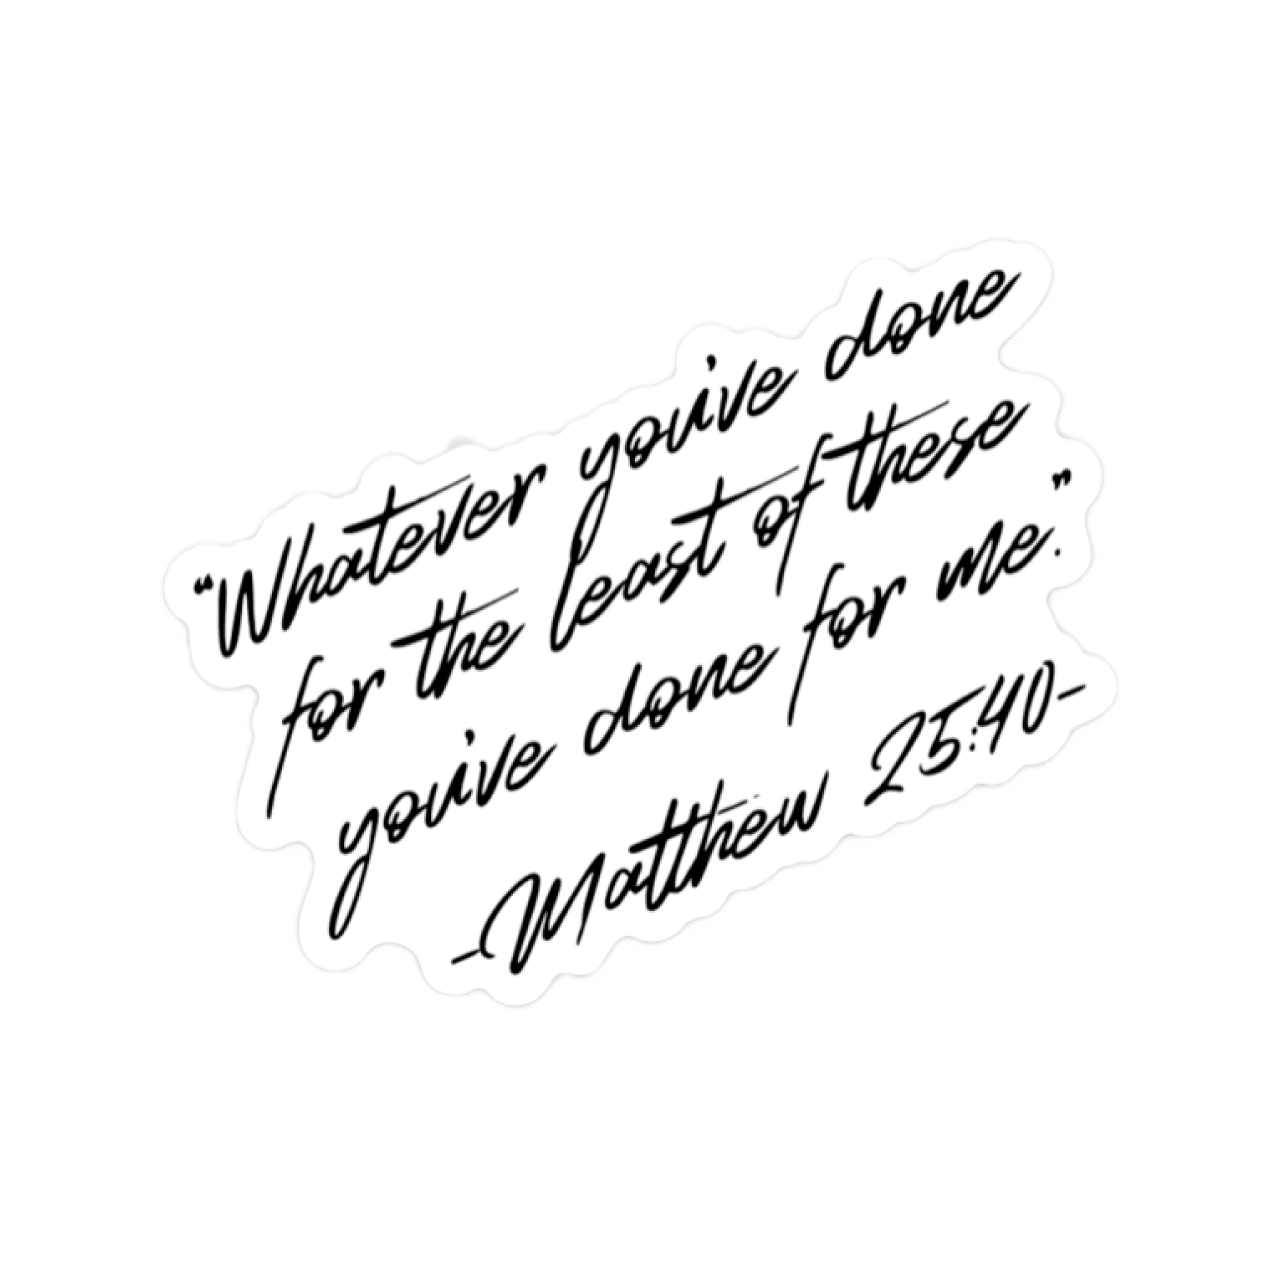 “Whatever you've done
for the least of these
you've done for me.”
-Matthew 25:40-